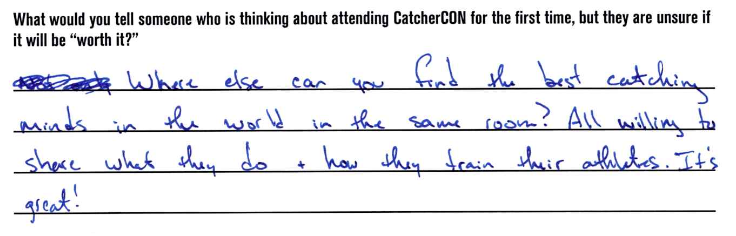 What would you tell someone who is thinking about attending CatcherCON for the first time, but they are unsure if
it will be “worth it?”
Where else can you find the best catching
minds in the world in the same room? All willing to
share what they do + how they train their athletes. It's
great!